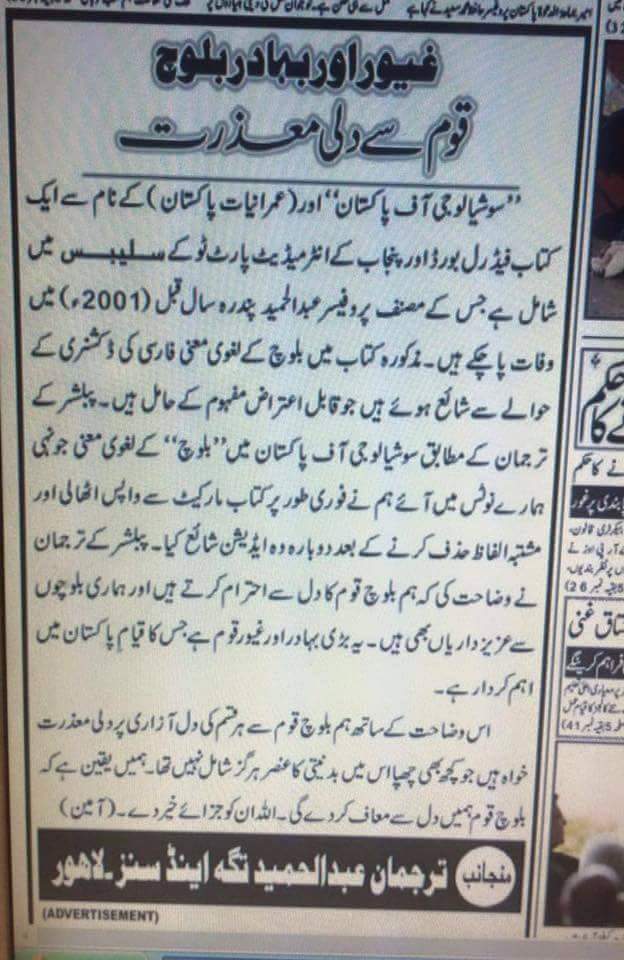 غیور اور بہادر بلوچ
قوم سے دلی معذرت
”سوشیالوجی آف پاکستان“ اور (عمرانیات پاکستان) کے نام سے ایک
کتاب فیڈرل بورڈ اور پنجاب کے انٹرمیڈیٹ پارٹ ٹو کے سلیبس میں
شامل ہے جس کے مصنف پروفیسر عبدالحمید پندرہ سال قبل (2001ء) میں
وفات پاچکے ہیں۔ مذکورہ کتاب میں بلوچ کے لغوی معنی فارسی کی ڈکشنری کے
حوالے سے شائع ہوئے ہیں جو قابل اعتراض مفہوم کے حامل ہیں۔ پبلشر کے
ترجمان کے مطابق سوشیالوجی آف پاکستان میں ”بلوچ“ کے لغوی معنی جونہی
ہمارے نوٹس میں آئے ہم نے فوری طور پر کتاب مارکیٹ سے واپس اٹھالی اور
مشتبہ الفاظ حذف کرنے کے بعد دوبارہ وہ ایڈیشن شائع کیا۔ پبلشر کے ترجمان
نے وضاحت کی کہ ہم بلوچ قوم کا دل سے احترام کرتے ہیں اور ہماری بلوچوں
سے عزیز داریاں بھی ہیں۔ یہ بڑی بہادر اور غیور قوم ہے جس کا قیام پاکستان میں
اہم کردار ہے۔
اس وضاحت کے ساتھ ہم بلوچ قوم سے ہر قسم کی دل آزاری پر دلی معذرت
خواہ ہیں جو کچھ بھی چھپا اس میں بدنیتی کا عنصر ہرگز شامل نہیں تھا۔ ہمیں یقین ہے کہ
بلوچ قوم ہمیں دل سے معاف کردے گی۔ اللہ ان کو جزائے خیر دے۔ (آمین)
منجانب ترجمان عبدالحمید تگہ اینڈ سنز۔ لاہور
(ADVERTISEMENT)
حکم
نے کا حکم
پابندی پر غور
سیکرٹری قانون،
بقیہ نمبر 26)
مشتاق غنی
فراہم کرینگے
بقیہ نمبر 41)